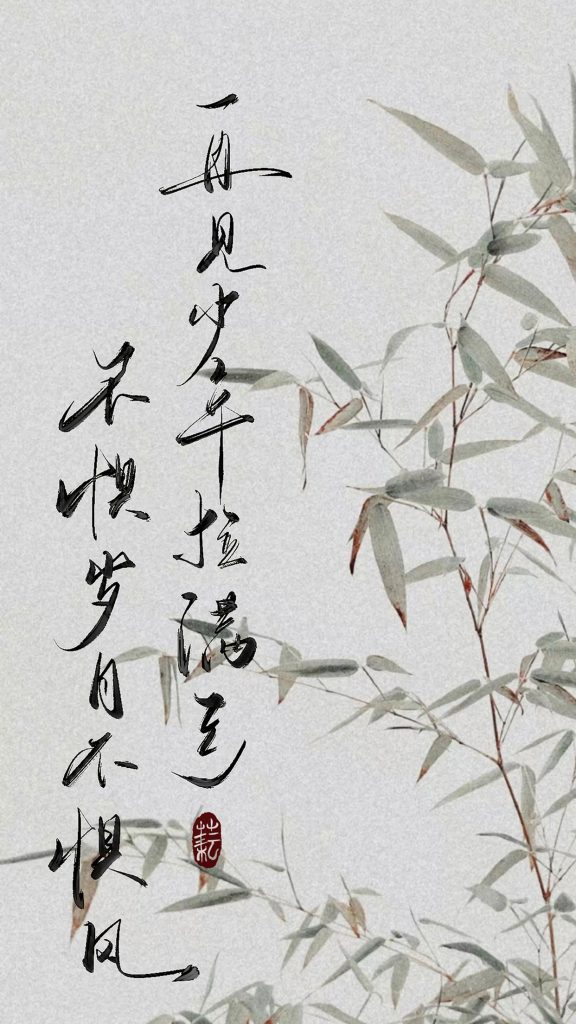 再见少年拉满弓
不惧岁月不惧风
耘